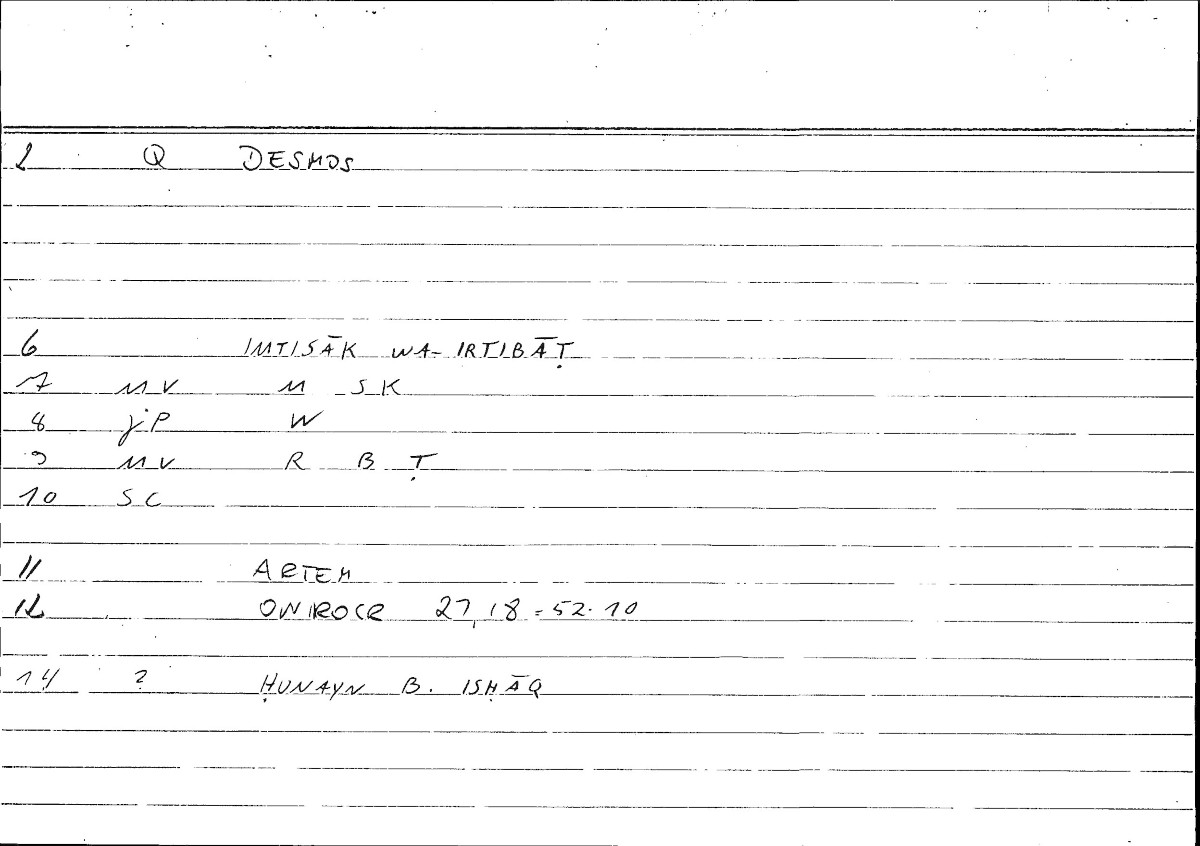 2 Q DESMOS
6 IMTISĀK WA-IRTIBĀṬ
7 MV M SK
8 jP W
9 MV R B Ṭ
10 SC
11 ARTEM
12 ONIROCR 27,18 = 52.10
14 2 ḤUNAYN B. ISḤĀQ